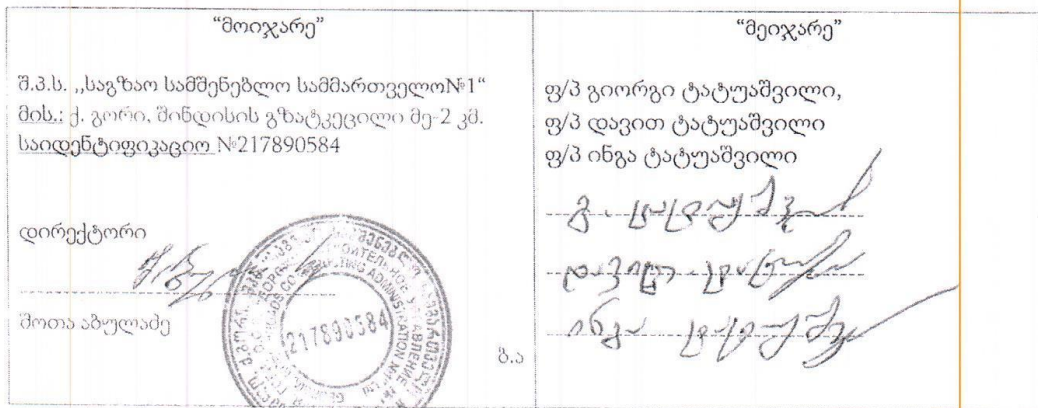 “მოიჯარე”
შ.პ.ს. ,,საგზაო სამშენებლო სამმართველო№1“
მის.: ქ. გორი, შინდისის გზატკეცილი მე-2 კმ.
საიდენტიფიკაციო №217890584
დირექტორი
შოთა აბულაძე
217890584
ბ.ა
“მეიჯარე”
ფ/პ გიორგი ტატუაშვილი,
ფ/პ დავით ტატუაშვილი
ფ/პ ინგა ტატუაშვილი
გ. ტატუაშვილი
დავით ტატუაშვილი
ინგა ტატუაშვილი